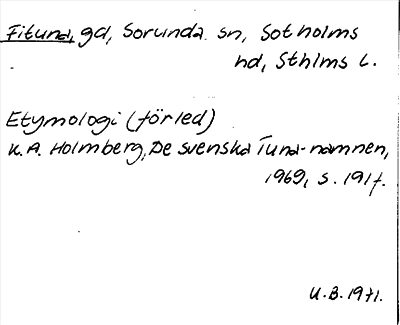 Fituna, gd, Sorunda sn, Sotholms
hd, Sthlms L.
Etymologi (förled)
K.A. Holmberg, De svenska Tuna-namnen,
1969, s. 191f.
U.B. 1971.